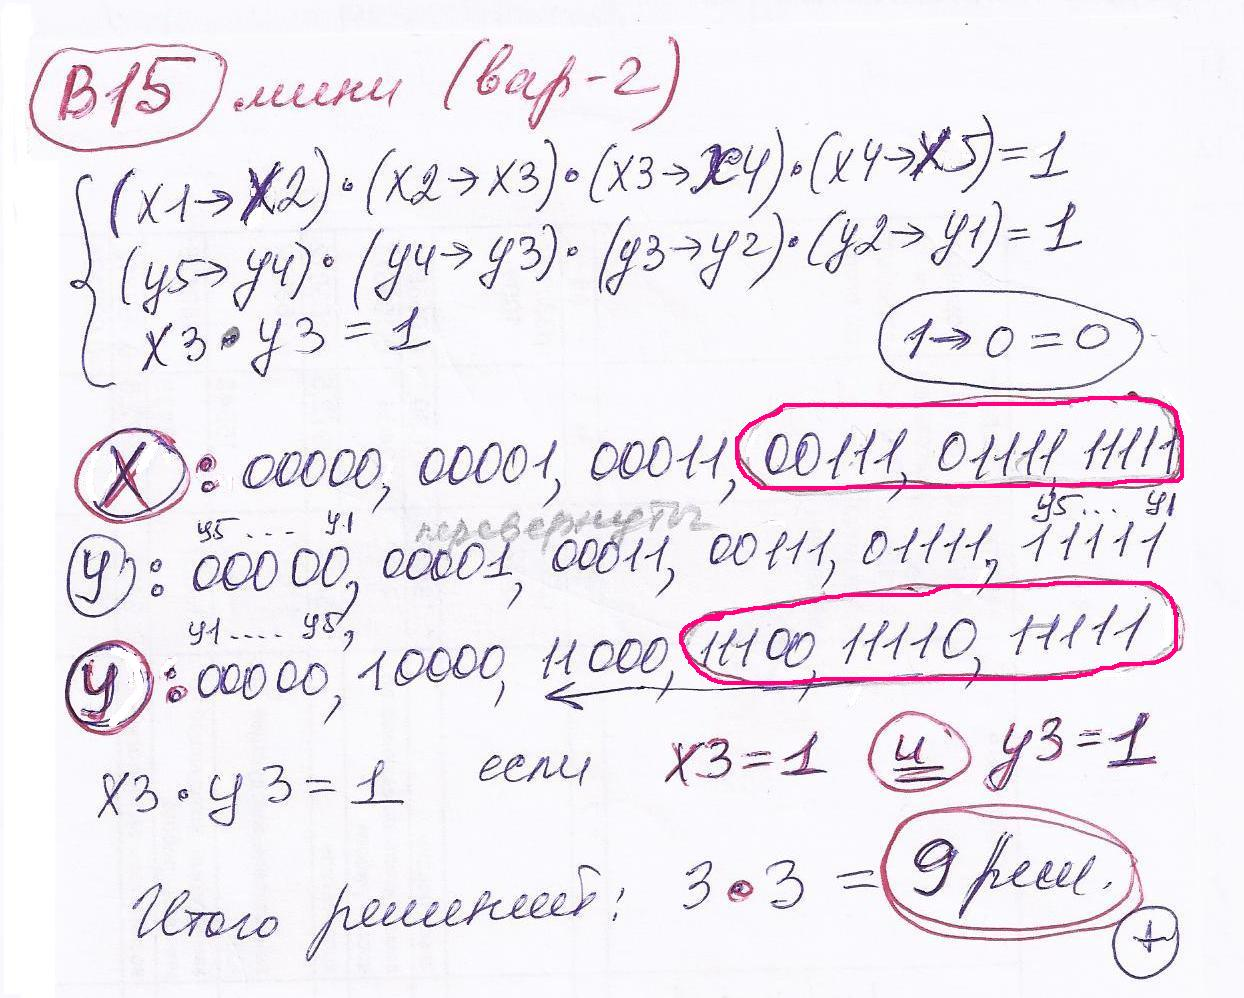 В15 мини (вар-2)
(x1→x2)·(x2→x3)·(x3→x4)·(x4→x5)=1
(y5→y4)·(y4→y3)·(y3→y2)·(y2→y1)=1
x3·y3=1
1→0=0
X: 00000, 00001, 00011, 00111, 01111, 11111
перевернуты
y5.... y1 y5... y1
y: 00000, 00001, 00011, 00111, 01111, 11111
y1.... y5,
y: 00000, 10000, 11000, 11100, 11110, 11111
x3·y3=1 если x3=1 и y3=1
Итого решений: 3·3=9 реш.
+